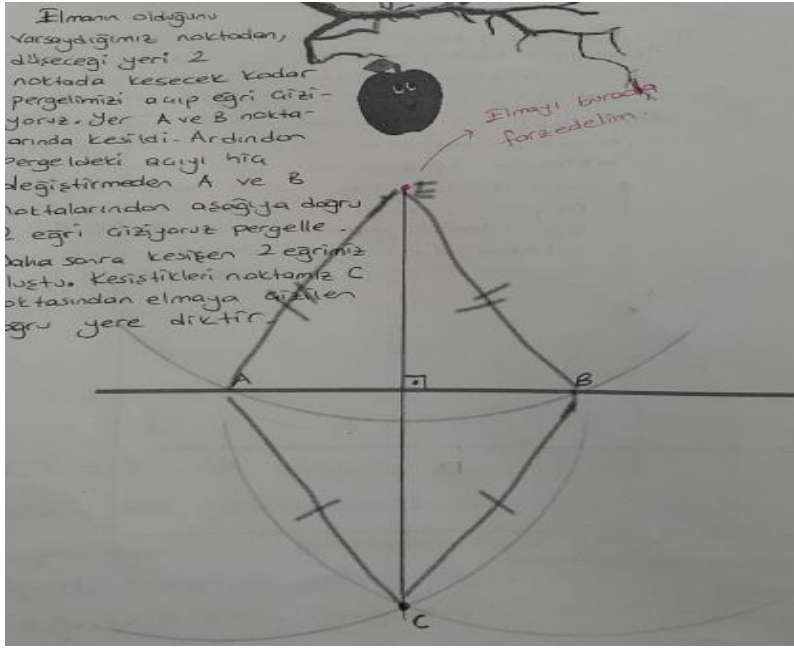 Elmanın olduğunu
varsaydığımız noktadan,
düşeceği yeri 2
noktada kesecek kadar
pergelimizi açıp eğri çizi-
yoruz. Yer A ve B nokta-
arında kesildi. Ardından
pergeldeki açıyı hiç
değiştirmeden A ve B
noktalarından aşağıya doğru
2 eğri çiziyoruz pergelle.
Daha sonra kesişen 2 eğrimiz
luştu. Kesiştikleri noktamız C
oktasından elmaya çizilen
oğru yere diktir.
Elmayı burada
farzedelim.
E
A
B
C